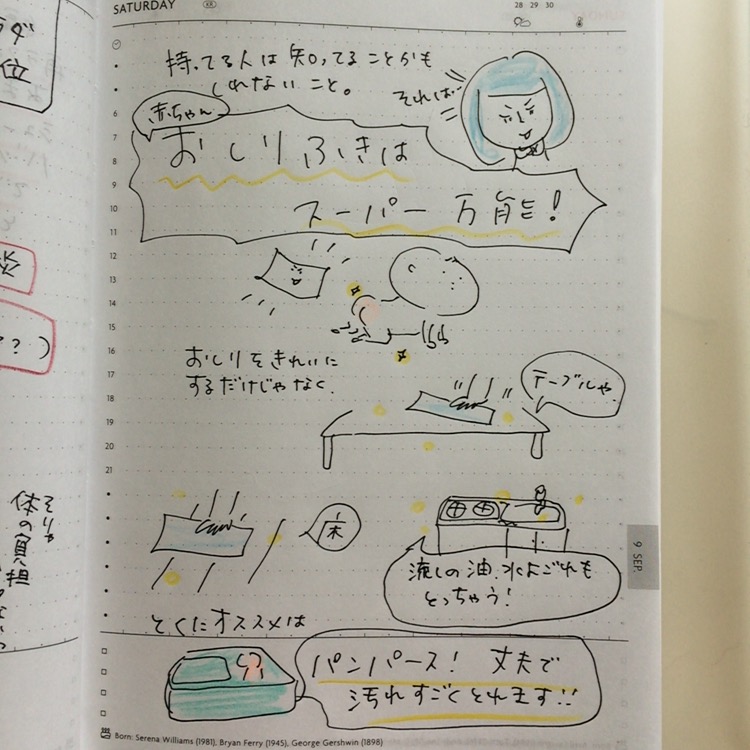 SATURDAY
28・29・30
持ってる人は知ってることかも
しれないこと。
それは…
赤ちゃん
おしりふきは
スーパー万能!
6
7
8
9
10
11
12
13
14
15
16
17
18
19
20
21
おしりをきれいに
するだけじゃなく、
テーブルや、
床
流しの油、水よごれも
とっちゃう!
とくにオススメは
パンパース! 丈夫で
汚れすごくとれます!!
9 SEP
Born: Serena Williams (1981), Bryan Ferry (1945), George Gershwin (1898)
位
??)
そりゃ
体の負担